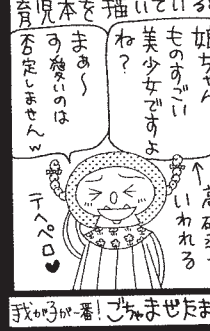 育児本を描いている
姫ちゃん
ものすごい
美少女ですよ
ね？
まぁ〜
可愛いのは
否定しませんw
いわれる
テヘペロ♥
我が子が一番！ごちゃまぜたま